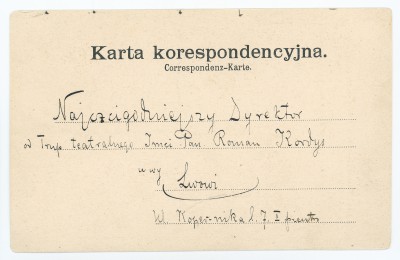 Karta korespondencyjna.
Correspondenz-Karte.
Najczcigodniejszy Dyrektor
od Trup teatralnego Imci Pan Roman Kordys
uwy
Lwowi
Ul. Kopernika l. 7 I